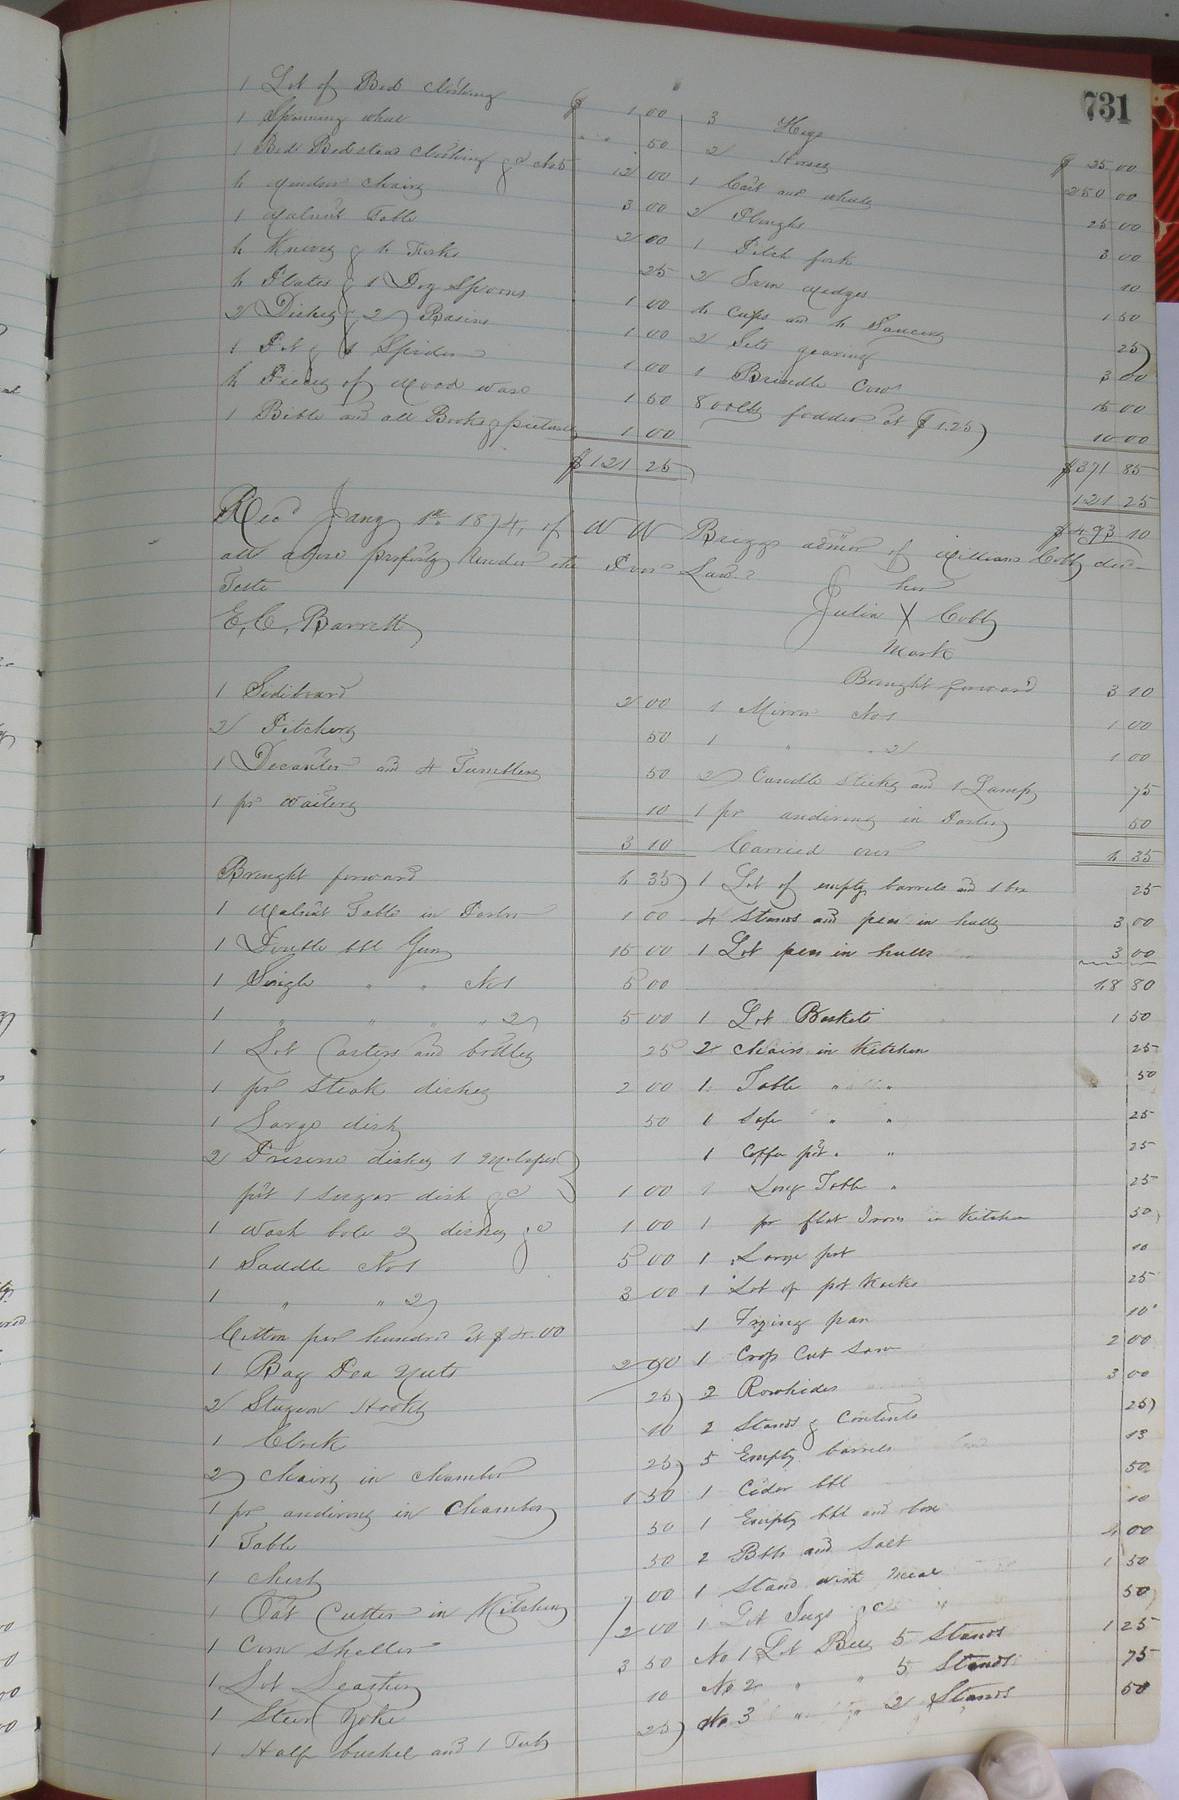 731
1 Lot of Bed clothing $ 1 00
1 Spinning wheel 50
1 Bed Bedstead Clothing &c No 5 12 00
4 Windsor Chairs 3 00
1 Walnut Table 2 00
4 Knives & 4 Forks 25
4 Plates & 1 Doz Spoons 1 00
2 Dishes & 2 Basins 1 00
1 Pot & 1 Spider 1 00
4 Pieces of Wood ware 1 50
1 Bible and all Books & pictures 1 00
$121 25
3 Hogs $ 25 00
2 Horses 250 00
1 Cart and wheels 25 00
2 Ploughs 3 00
1 Pitch fork 10
2 Iron Wedges 1 50
4 Cups and 4 Saucers 25
2 Sets gearing 3 00
1 Brindle Cow 15 00
800 lbs fodder at $1.25 10 00
$371 85
121 25
$493 10
Recd Jany 1st 1874, of W W Briggs admor of William Cobb decd
all above property under the Poor Law.
Teste
E. C. Barrett
her
Julia X Cobb
Mark
1 Sideboard 2 00
2 Pitchers 50
1 Decanter and 4 Tumblers 50
1 pr Waiters 10
3 10
Brought forward 3 10
1 Mirror No 1 1 00
1 " " 2 1 00
2 Candle sticks and 1 Lamp 75
1 pr andirons in Parlor 50
Carried over 6 35
Brought forward 6 35
1 Walnut Table in Parlor 1 00
1 Double bbl Gun 15 00
1 Single " " No 1 5 00
1 " " " " 2 5 00
1 Lot Castors and bottles 25
1 pr Steak dishes 2 00
1 Large dish 50
2 Preserve dishes 1 Molasses
pot 1 sugar dish &c 1 00
1 Wash bole 2 dishes &c 1 00
1 Saddle No 1 5 00
1 " " 2 3 00
Cotton per hundred at $4.00
1 Bag Pea Nuts 2 00
2 Sturgeon Hooks 25
1 Clock 10
2 Chairs in Chamber 25
1 pr andirons in Chamber 1 50
1 Table 50
1 Chest 50
1 Oat Cutter in Kitchen 7 00
1 Corn Sheller 2 00
1 Lot Leather 3 50
1 Steer Yoke 10
1 Half bushel and 1 Tub 25
1 Lot of empty barrels and 1 box 25
4 Stands and peas in hulls 3 00
1 Lot peas in hulls 3 00
48 80
1 Lot Baskets 1 50
2 Chairs in Kitchen 25
1 Table " " 50
1 Safe " " 25
1 Coffee pot " " 25
1 Long Table " 25
1 pr flat Irons in Kitchen 50
1 Large pot 10
1 Lot of pot Racks 25
1 Frying pan 10
1 Cross Cut Saw 2 00
2 Rawhides 3 00
2 Stands & Contents 25
5 Empty barrels 13
1 Cider bbl 50
1 Empty bbl and box 10
2 Bbls and Salt 4 00
1 Stand with Meal 1 50
1 Lot Jugs &c " 50
No 1 Lot Bees 5 Stands 1 25
No 2 " " 5 Stands 75
No 3 " " 2 Stands 50